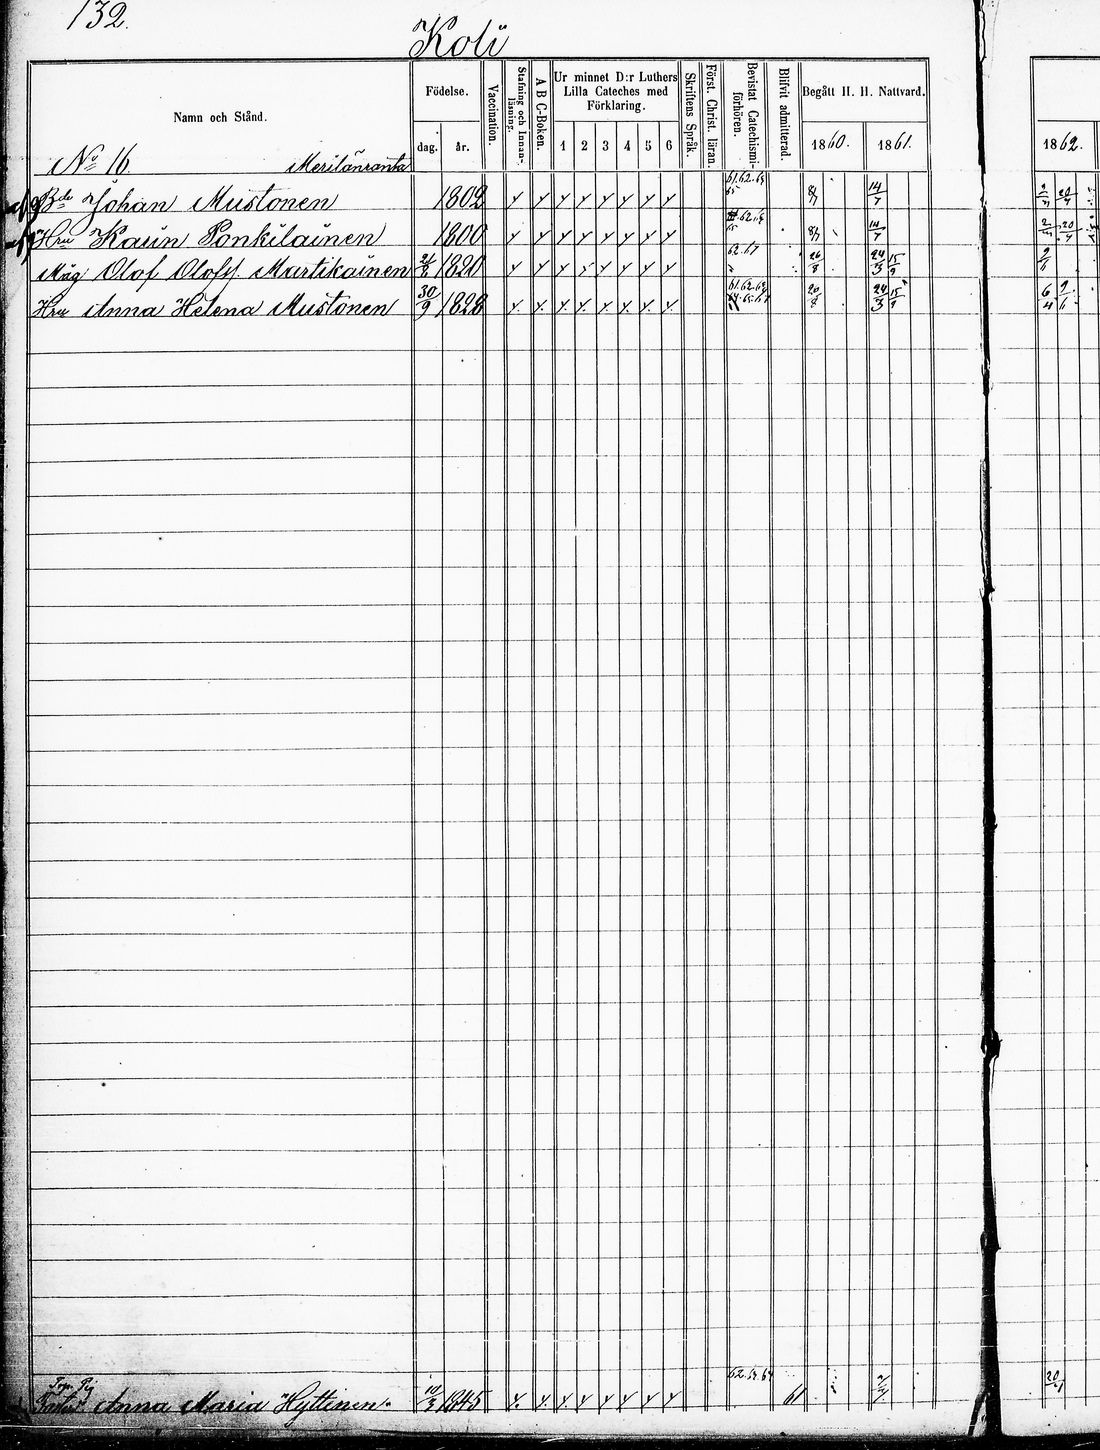 132.
Koli
Namn och Stånd.
Födelse.
dag. år.
Vaccination.
Stafning och Innanläsning.
A B C-Boken.
Ur minnet D:r Luthers Lilla Cateches med Förklaring.
1 2 3 4 5 6
Skriftens Språk.
Först. Christ. läran.
Bevistat Catechismiförhören.
Blifvit admitterad.
Begått H. H. Nattvard.
1860. 1861.
1862.
No 16. Merilänranta
Johan Mustonen 1802 14/7
Hru Karin Ponkilainen 1800 14/7
Måg Olof Olofss. Martikainen 1820 62.67 26/8 24/3 15/9
Hru Anna Helena Mustonen 30/9 1828 20/8 24/3 15/9
Anna Maria Hyttinen. 10/3 1845 61